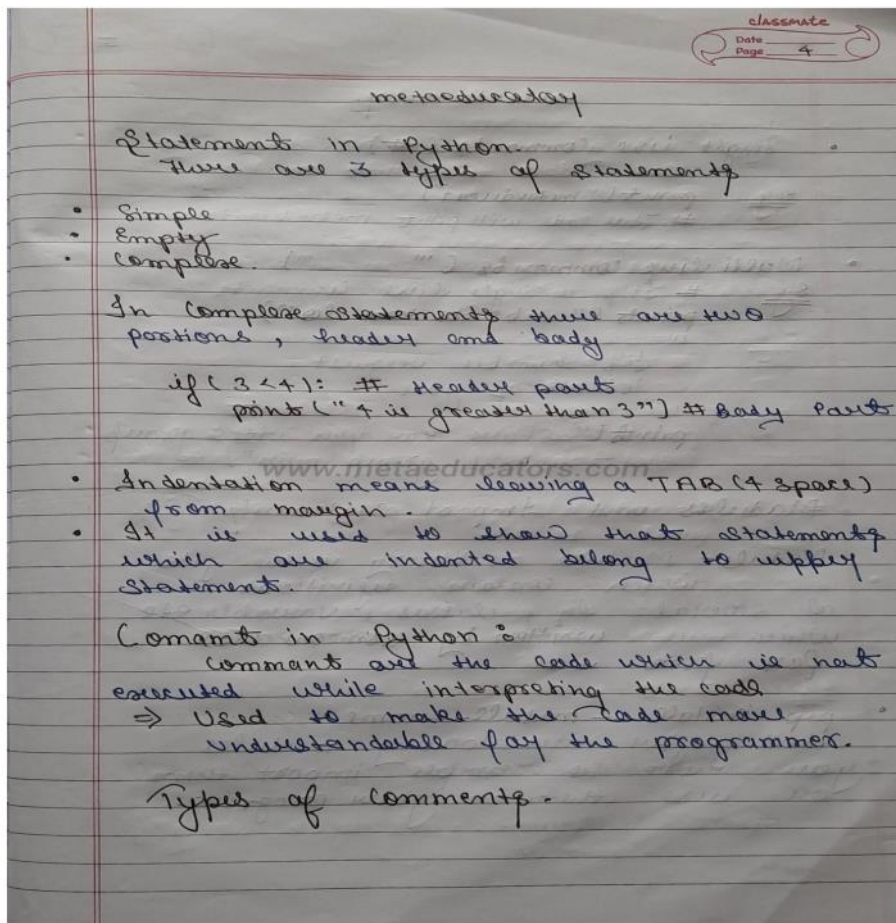 classmate
Date
Page 4
metaeducator
Statement in Python.
There are 3 types of statements
• Simple
• Empty
• Complexe.
In Complexe statements there are two
portions, header and body
if (3<4): # Header part
print("4 is greater than 3") # Body Part
www.metaeducators.com
• Indentation means leaving a TAB (4 space)
from margin.
• It is used to show that statements
which are indented belong to upper
statement.
Comamt in Python :
Commant are the code which is not
executed while interpreting the code
⇒ Used to make the code more
understandable for the programmer.
Types of comments.